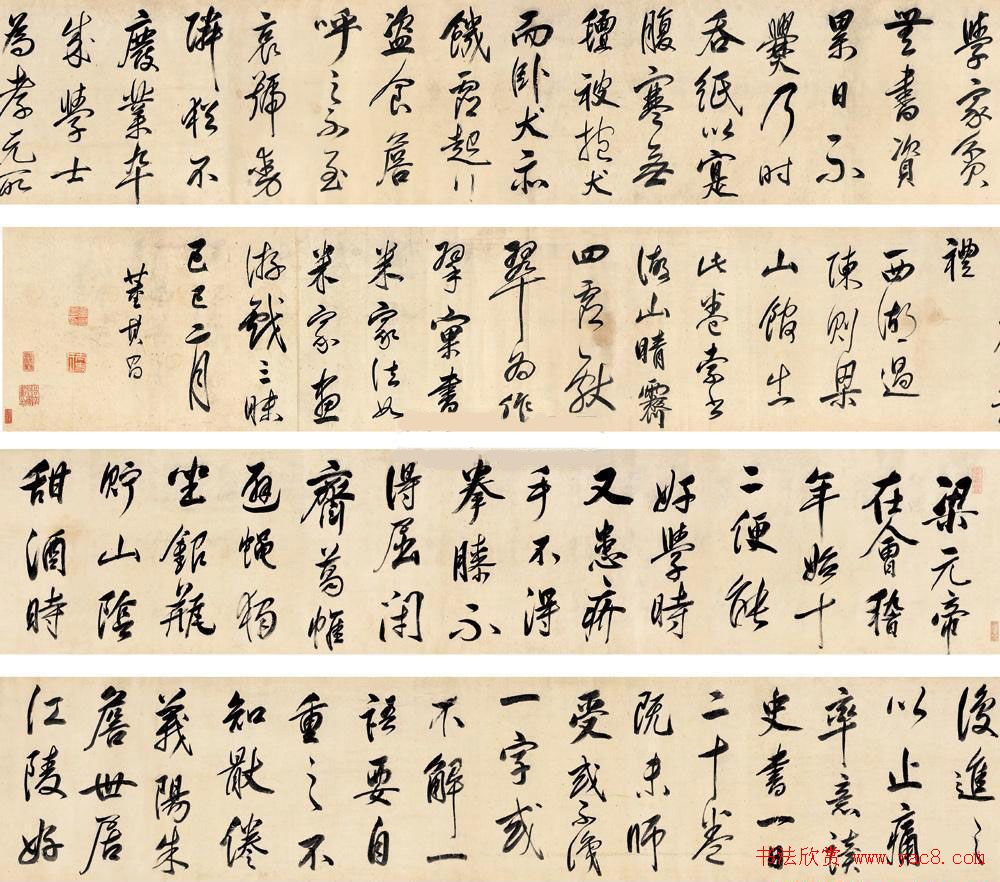 學家貧
無書資
累日不
爨乃时
吞紙以寔
腹寒無
氊被抱犬
而臥犬亦
饑虚起行
盜食舊
呼之不至
哀號動
隣猶不
廢業卒
成學士
為孝元所
禮
西湖過
陳則梁
山館出
此卷索書
湖山晴霽
四虚獻
翠為作
擘窠書
米家法如
米家畫
游戲三昧
己巳二月
董其昌
梁元帝
在會稽
年始十
二便能
好學時
又患疥
手不得
拳膝不
得屈閉
齊葛幃
避蠅獨
坐銀甌
貯山陰
甜酒時
復進之
以止痛
率意讀
史書一日
二十卷
既未師
受或不識
一字或
不解一
語要自
重之不
知厭倦
義陽朱
詹世居
江陵好
书法欣赏 www.yac8.com